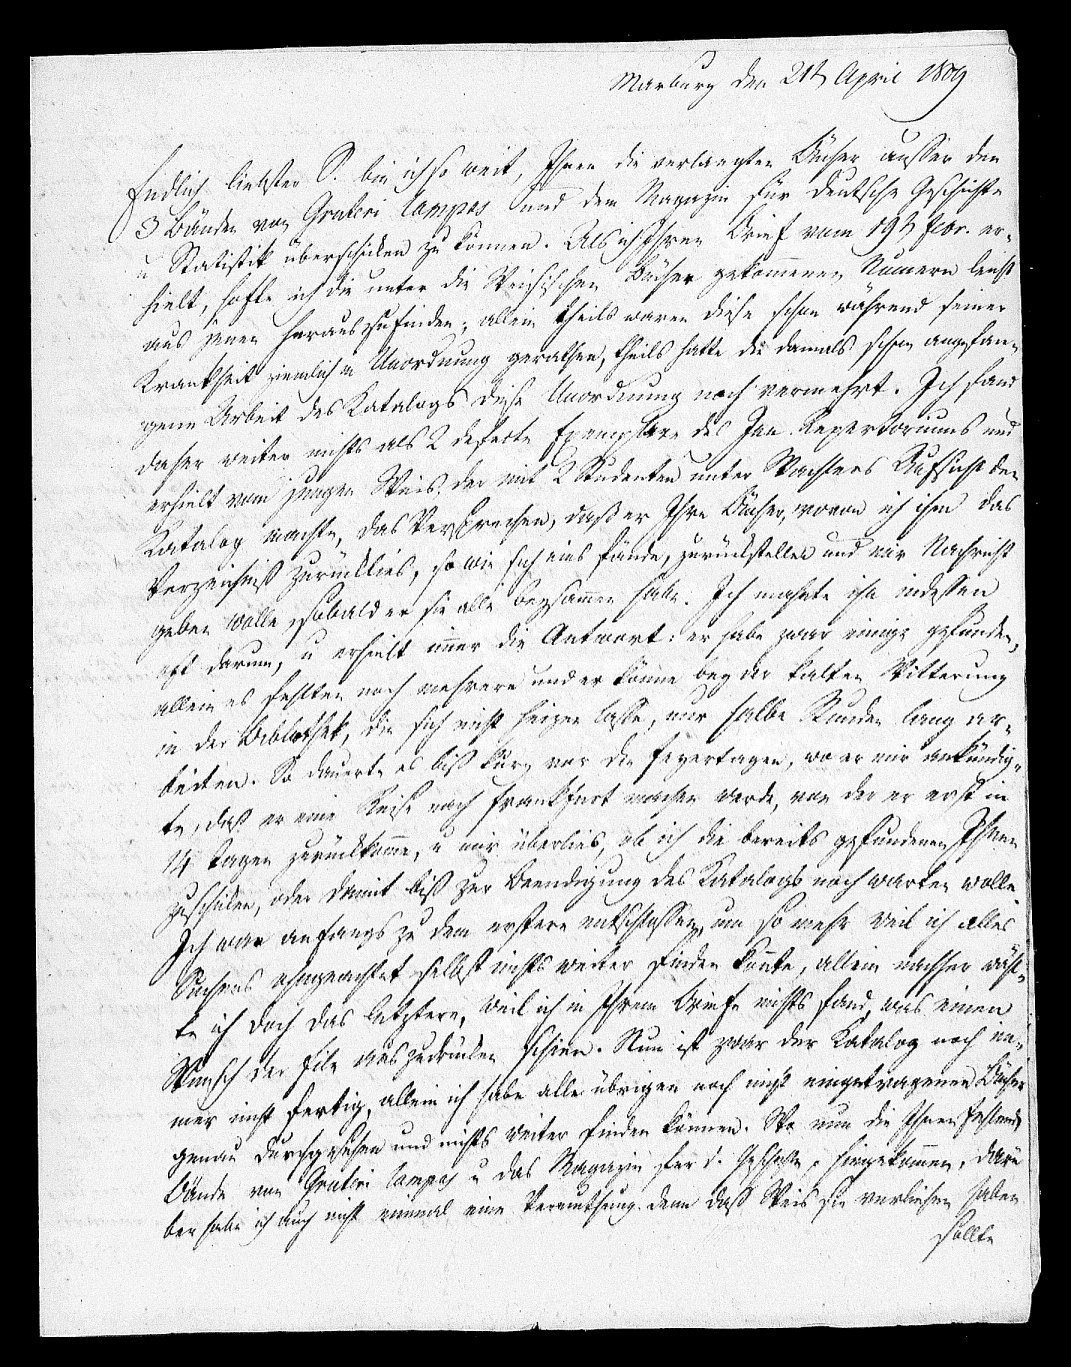 Marburg den 21t April 1809
Endlich liebster S. bin ich so weit, Ihnen die verlangten Bücher ausser den
3 Bänden von Gruteri lampas und dem Magazin für deutsche Geschichte
u Statistik überschicken zu können. Als ich Ihren Brief vom 19t febr. er-
hielt, hofte ich die unter die Weisischen Bücher gekommenen Numern leicht
aus jenen herauszufinden; allein theils waren diese schon während seiner
Krankheit ziemlich in Unordnung gerathen, theils hatte die damals schon angefan-
gene Arbeit des Katalogs diese Unordnung noch vermehrt. Ich fand
daher weiter nichts als 2 defecte Exemplare des Jen. Repertoriums und
erhielt vom jungen Weis, der mit 2 Studenten unter Wachlers Aufsicht den
Katalog machte, das Versprechen, daß er Ihre Bücher, wovon ich ihm das
Verzeichniß zurücklies, so wie sich eins fände, zurückstellen und mir Nachricht
geben wolle sobald er sie alle beysammen habe. Ich mahnte ihn indessen
oft darum, u erhielt imer die Antwort: er habe zwar einige gefunden,
allein es fehlten noch mehrere und er könne bey der kalten Witterung
in der Bibliothek, die sich nicht heizen lasse, nur halbe Stunden lang ar-
beiten. So dauerte es biß kurz vor die feyertagen, wo er mir ankündig-
te, daß er eine Reise nach Frankfurt machen werde, von der er erst in
14 Tagen zurückkomme, u mir überlies, ob ich die bereits gefundenen Ihnen
zuschicken, oder damit biß zur Beendigung des Katalogs noch warten wolle.
Ich war anfangs zu dem erstern entschlossen, um so mehr weil ich alles
Suchens ohngeachtet selbst nichts weiter finden konte, allein nachher wähl-
te ich doch das letztere, weil ich in Ihrem Briefe nichts fand, was einen
Wunsch der Eile auszudrücken schien. Nun ist zwar der Katalog noch im-
mer nicht fertig, allein ich habe alle übrigen noch nicht eingetragenen Bücher
genau durchgesehen und nichts weiter finden können. Wo nun die Ihnen fehlenden
Bände von Gruteri lampas u das Magazin für d. Geschichte hingekommen, darü-
ber habe ich auch nicht einmal eine Vermuthung. denn daß Weis sie verliehen haben
sollte